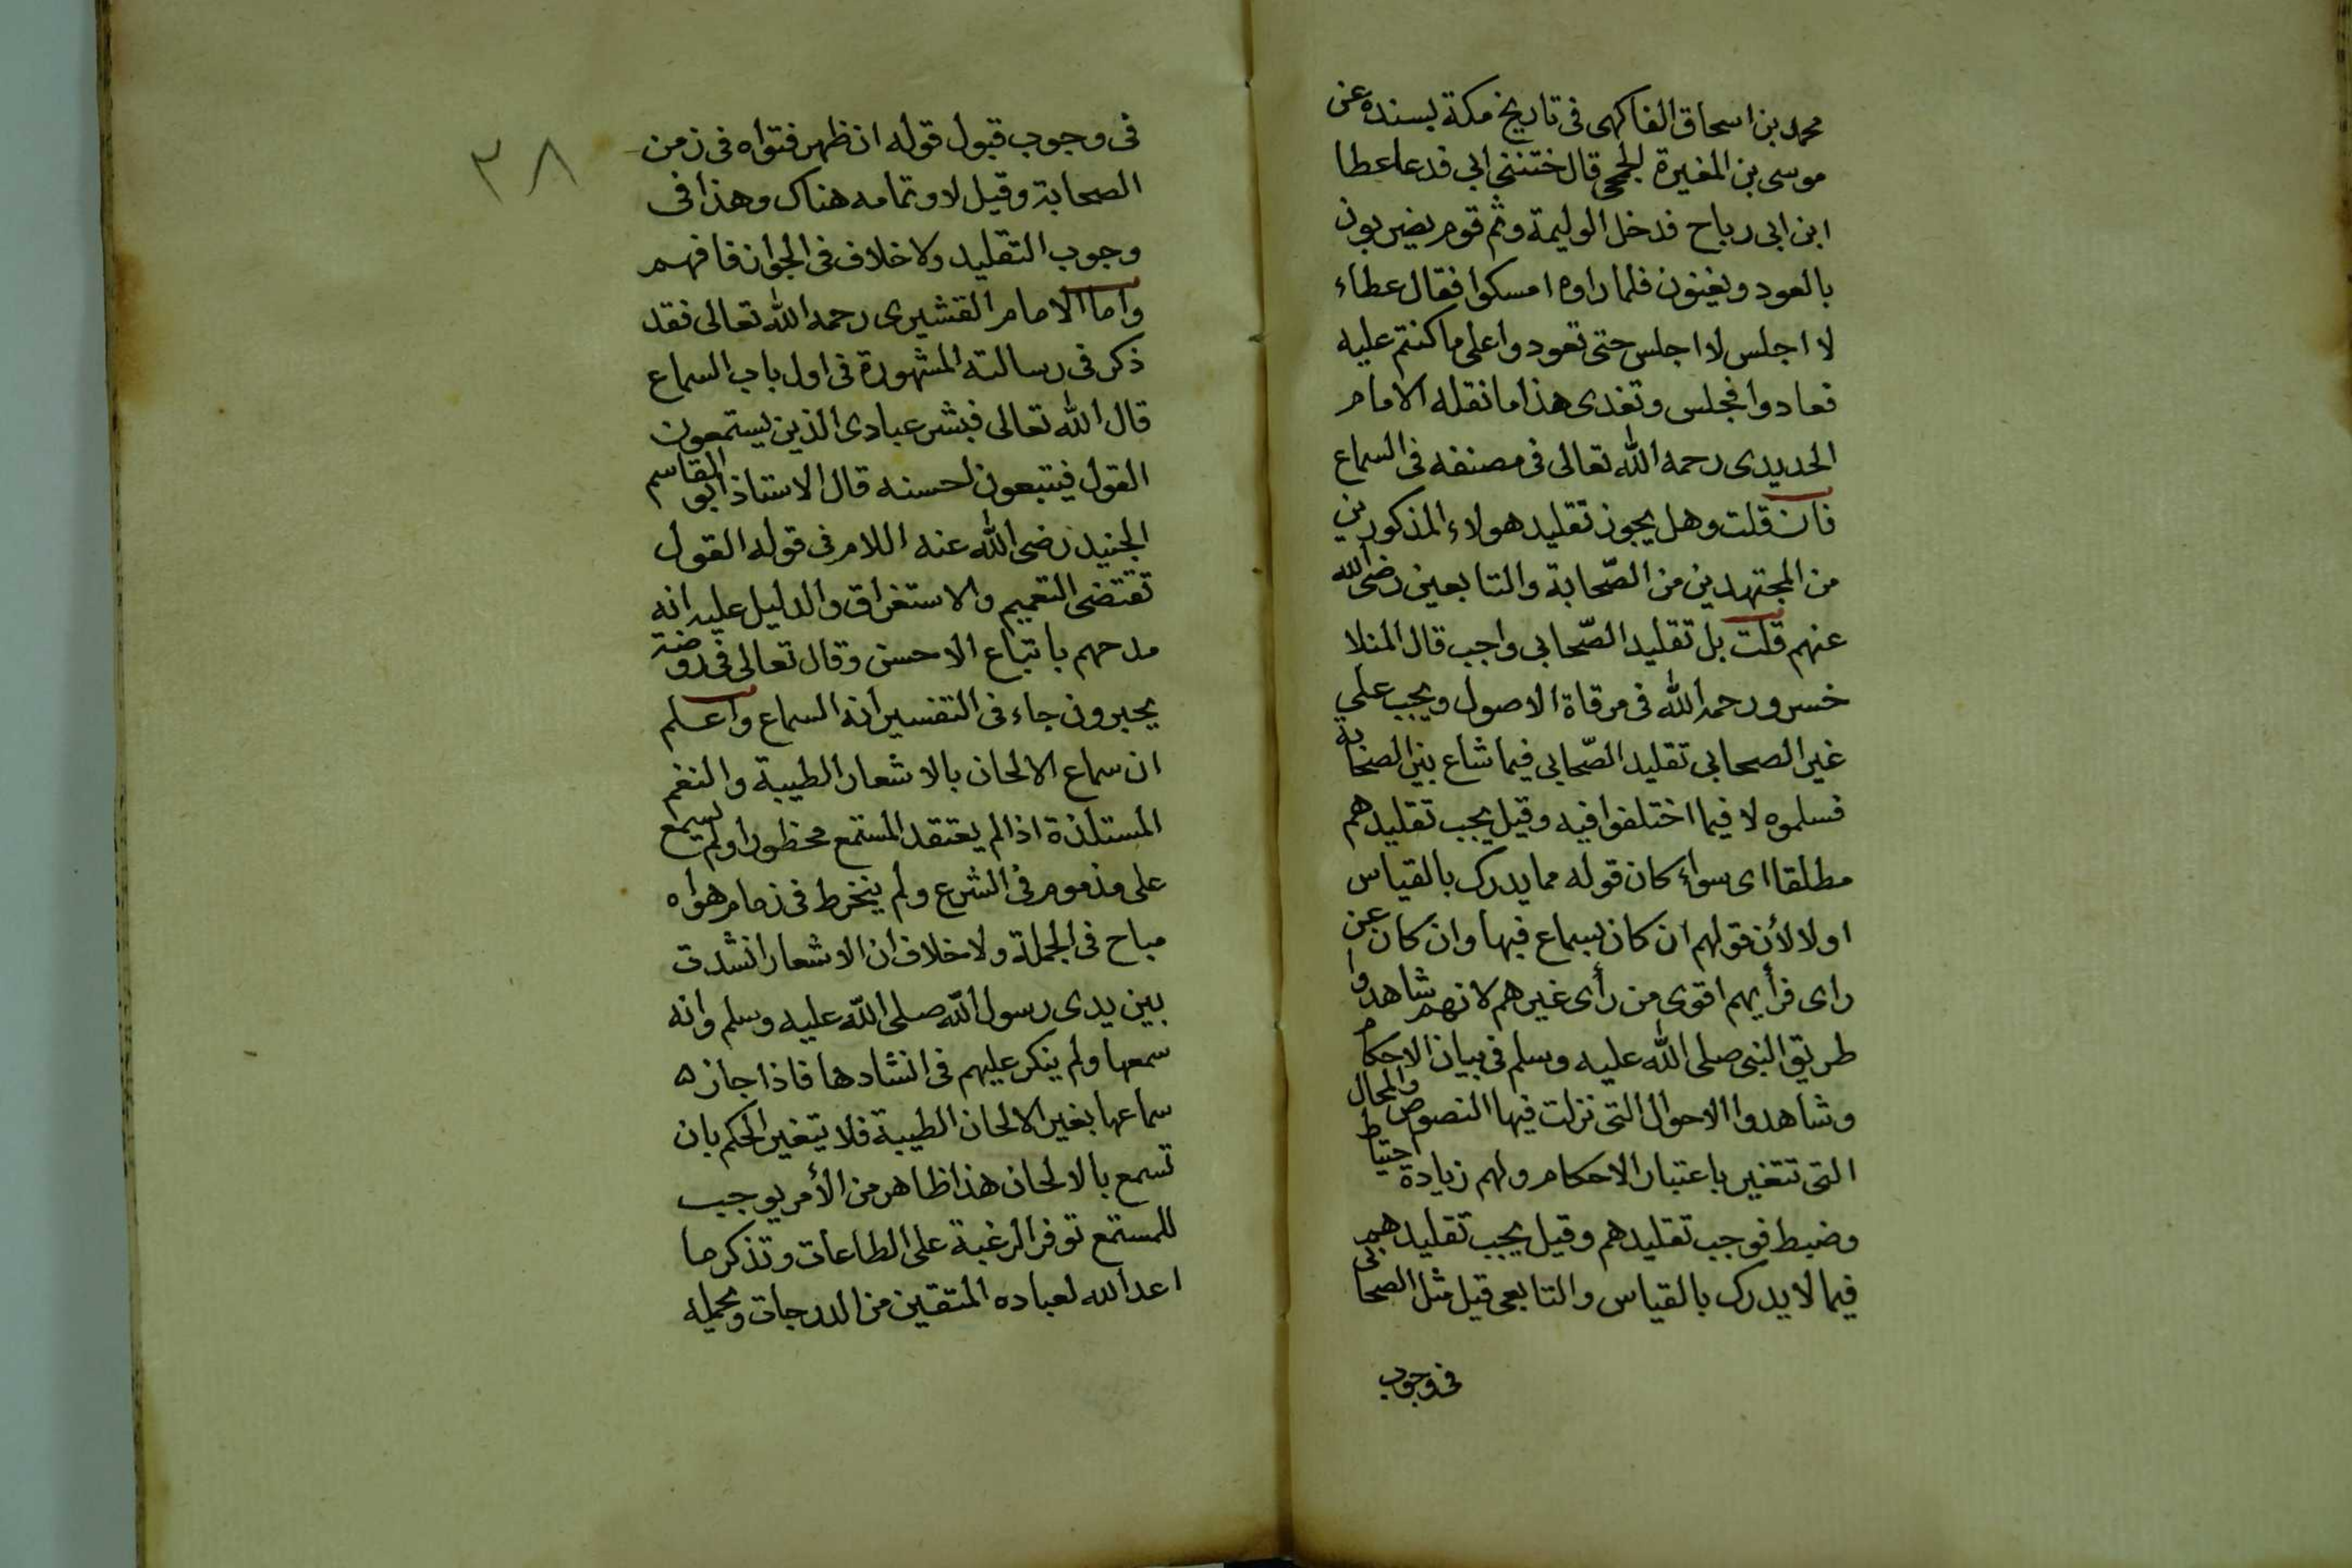 محمد بن اسحاق الفاكهى فى تاريخ مكة بسنده عن
موسى بن المغيرة الجمحى قال ختننى ابى فدعا عطا
ابن ابى رباح فدخل الوليمة وثم قوم يضربون
بالعود ويغنون فلما راوه امسكوا فقال عطاء
لا اجلس لا اجلس حتى تعودوا على ما كنتم عليه
فعادوا فجلس وتغدى هذا ما نقله الامام
الحديدى رحمه الله تعالى فى مصنفه فى السماع
فان قلت وهل يجوز تقليد هولاء المذكورين
من المجتهدين من الصّحابة والتابعين رضى الله
عنهم قلت بل تقليد الصّحابى واجب قال المنلا
خسرو رحمه الله فى مرقاة الاصول ويجب على
غير الصحابى تقليد الصّحابى فيما شاع بين الصحابة
فسلموه لا فيما اختلفوا فيه وقيل يجب تقليدهم
مطلقا اى سواء كان قوله مما يدرك بالقياس
اولا لأن قولهم ان كان بسماع فبها وان كان عن
راى فرأيهم اقوى من رأى غيرهم لانهم شاهدوا
طريق النبى صلى الله عليه وسلم فى بيان الاحكام
وشاهدوا الاحوال التى نزلت فيها النصوص والمحال
التى تتغير باعتبار الاحكام ولهم زيادة احتياط
وضبط فوجب تقليدهم وقيل يجب تقليدهم
فيما لا يدرك بالقياس والتابعى قيل مثل الصحابى
فى وجوب
٣٨
فى وجوب قبول قوله ان ظهر فتواه فى زمن
الصحابة وقيل لا وتمامه هناك وهذا فى
وجوب التقليد ولا خلاف فى الجواز فافهم
واما الامام القشيرى رحمه الله تعالى فقد
ذكر فى رسالته المشهورة فى اول باب السماع
قال الله تعالى فبشر عبادى الذين يستمعون
القول فيتبعون احسنه قال الاستاذ ابو القاسم
الجنيد رضى الله عنه اللام فى قوله القول
تقتضى التعميم والاستغراق والدليل عليه انه
مدحهم باتباع الاحسن وقال تعالى فى روضة
يحبرون جاء فى التفسير انه السماع واعلم
ان سماع الالحان بالاشعار الطيبة والنغم
المستلذة اذا لم يعتقد المستمع محظورا ولم يسمع
على مذموم فى الشرع ولم ينخرط فى زمام هواه
مباح فى الجملة ولا خلاف ان الاشعار انشدت
بين يدى رسول الله صلى الله عليه وسلم وانه
سمعها ولم ينكر عليهم فى انشادها فاذا جاز
سماعها بغير الالحان الطيبة فلا يتغير الحكم بان
تسمع بالالحان هذا ظاهر من الأمر يوجب
للمستمع توفر الرغبة على الطاعات وتذكر ما
اعد الله لعباده المتقين من الدرجات ويحمله